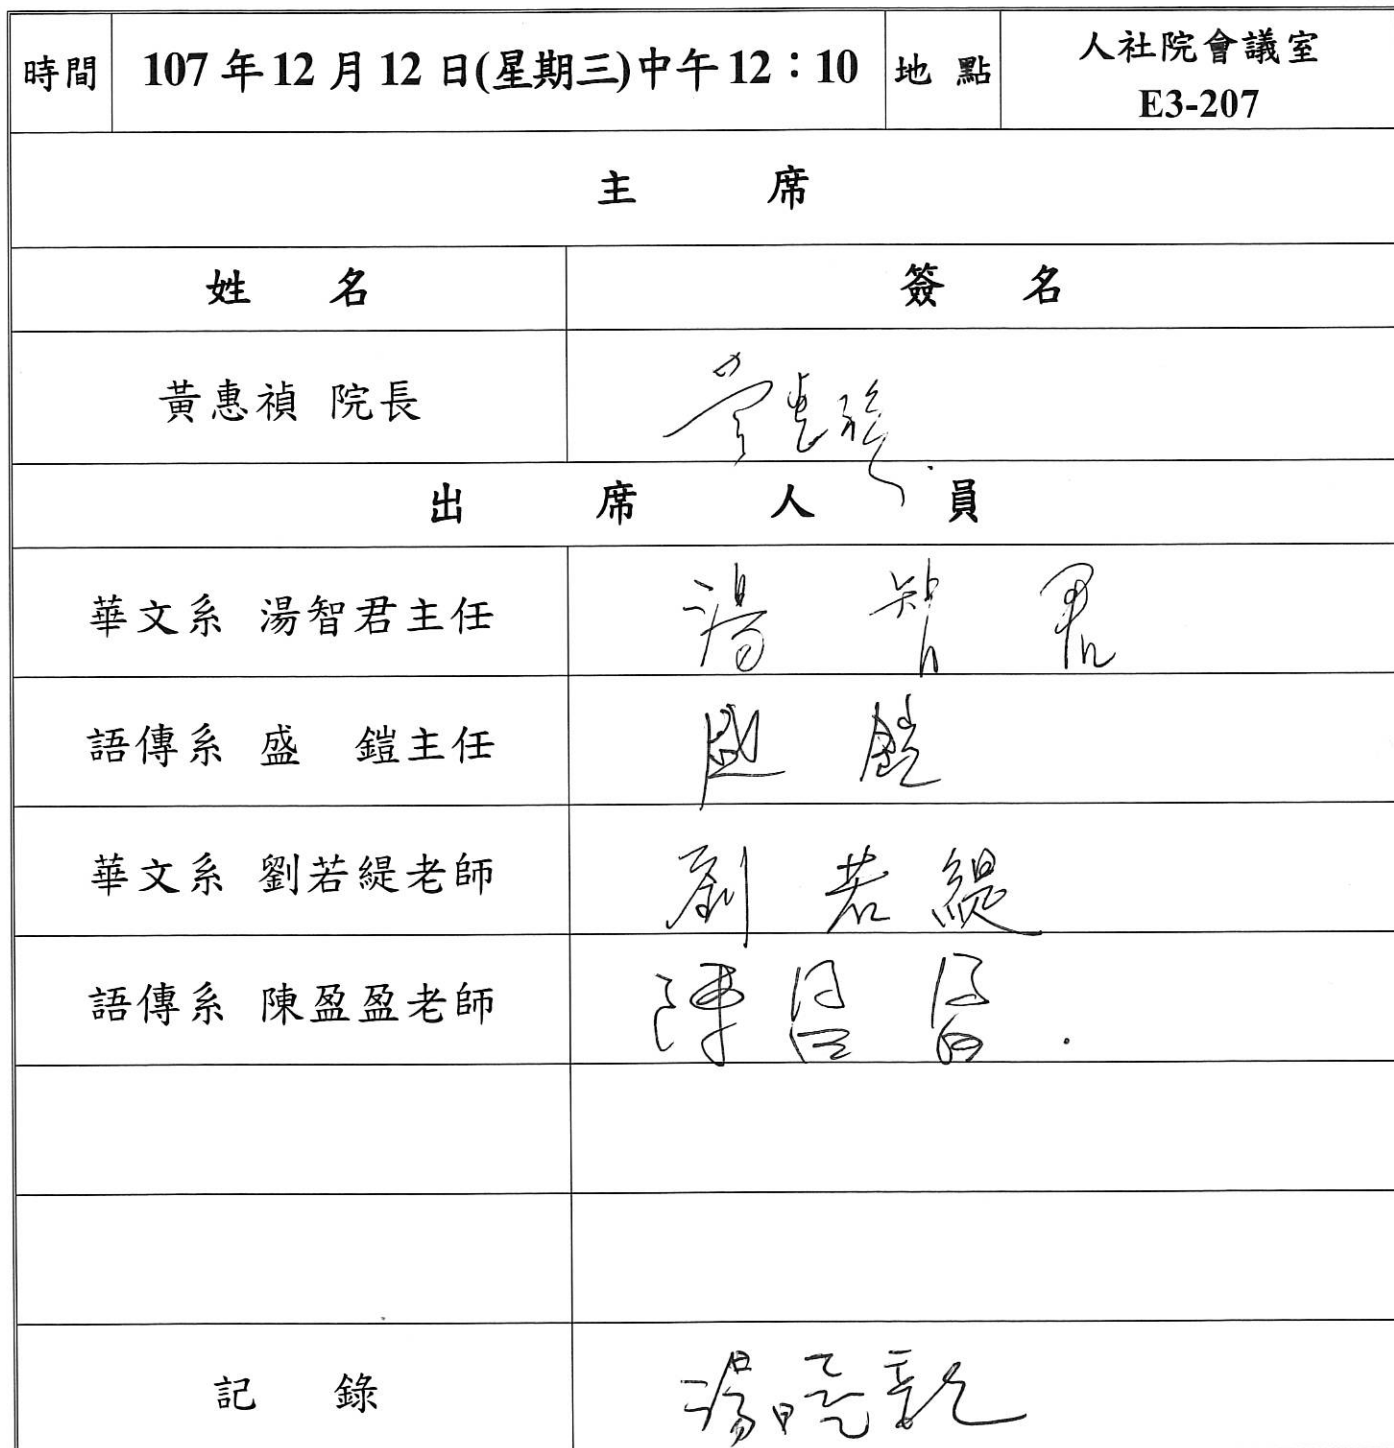 時間 107年12月12日(星期三)中午12：10 地點 人社院會議室
E3-207
主 席
姓 名 簽 名
黃惠禎 院長 黃惠禎
出 席 人 員
華文系 湯智君主任 湯智君
語傳系 盛 鎧主任 盛鎧
華文系 劉若緹老師 劉若緹
語傳系 陳盈盈老師 陳盈盈
記 錄 湯